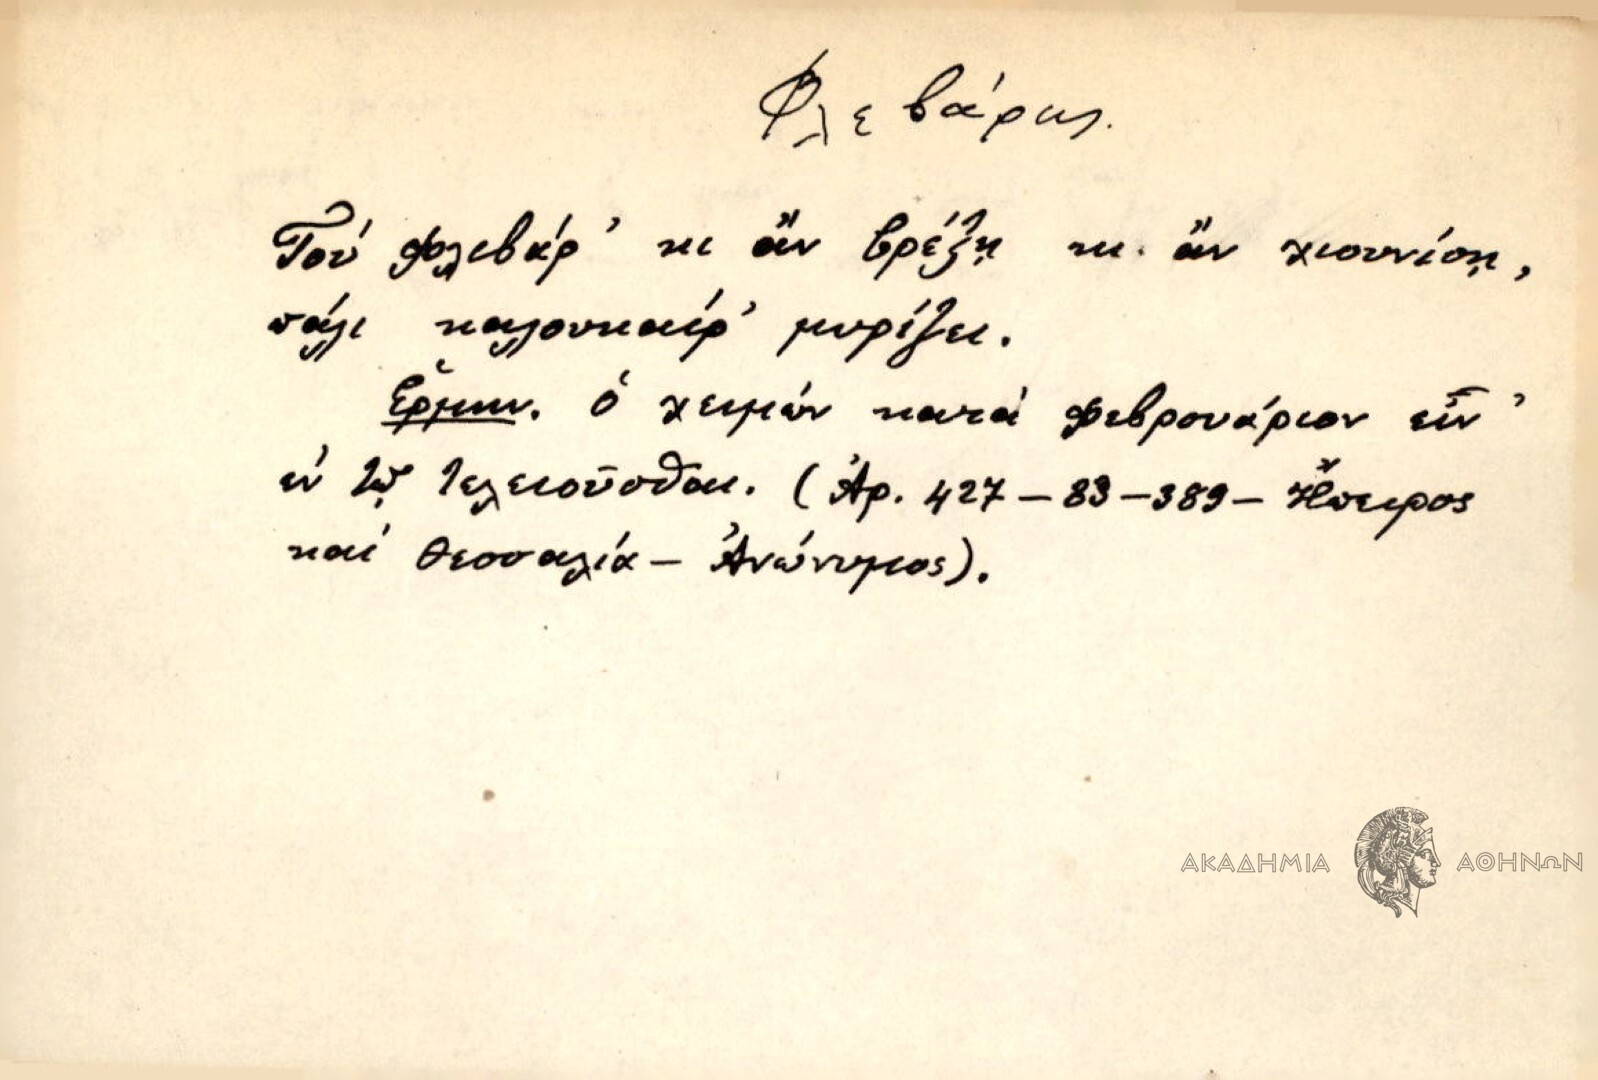 Φλεβάρης.
Τού Φλιβάρ' κι ἄν βρέξῃ κι ἄν χιουνίσῃ,
πάλι καλουκαίρ' μυρίζει.
Ἑρμην. ὁ χειμών κατά Φεβρουάριον εἶν'
ἐν τῷ τελειοῦσθαι. (Ἀρ. 427 – 83 – 389 – Ἤπειρος
καί Θεσσαλία – Ἀνώνυμος).
ΑΚΑΔΗΜΙΑ ΑΘΗΝΩΝ